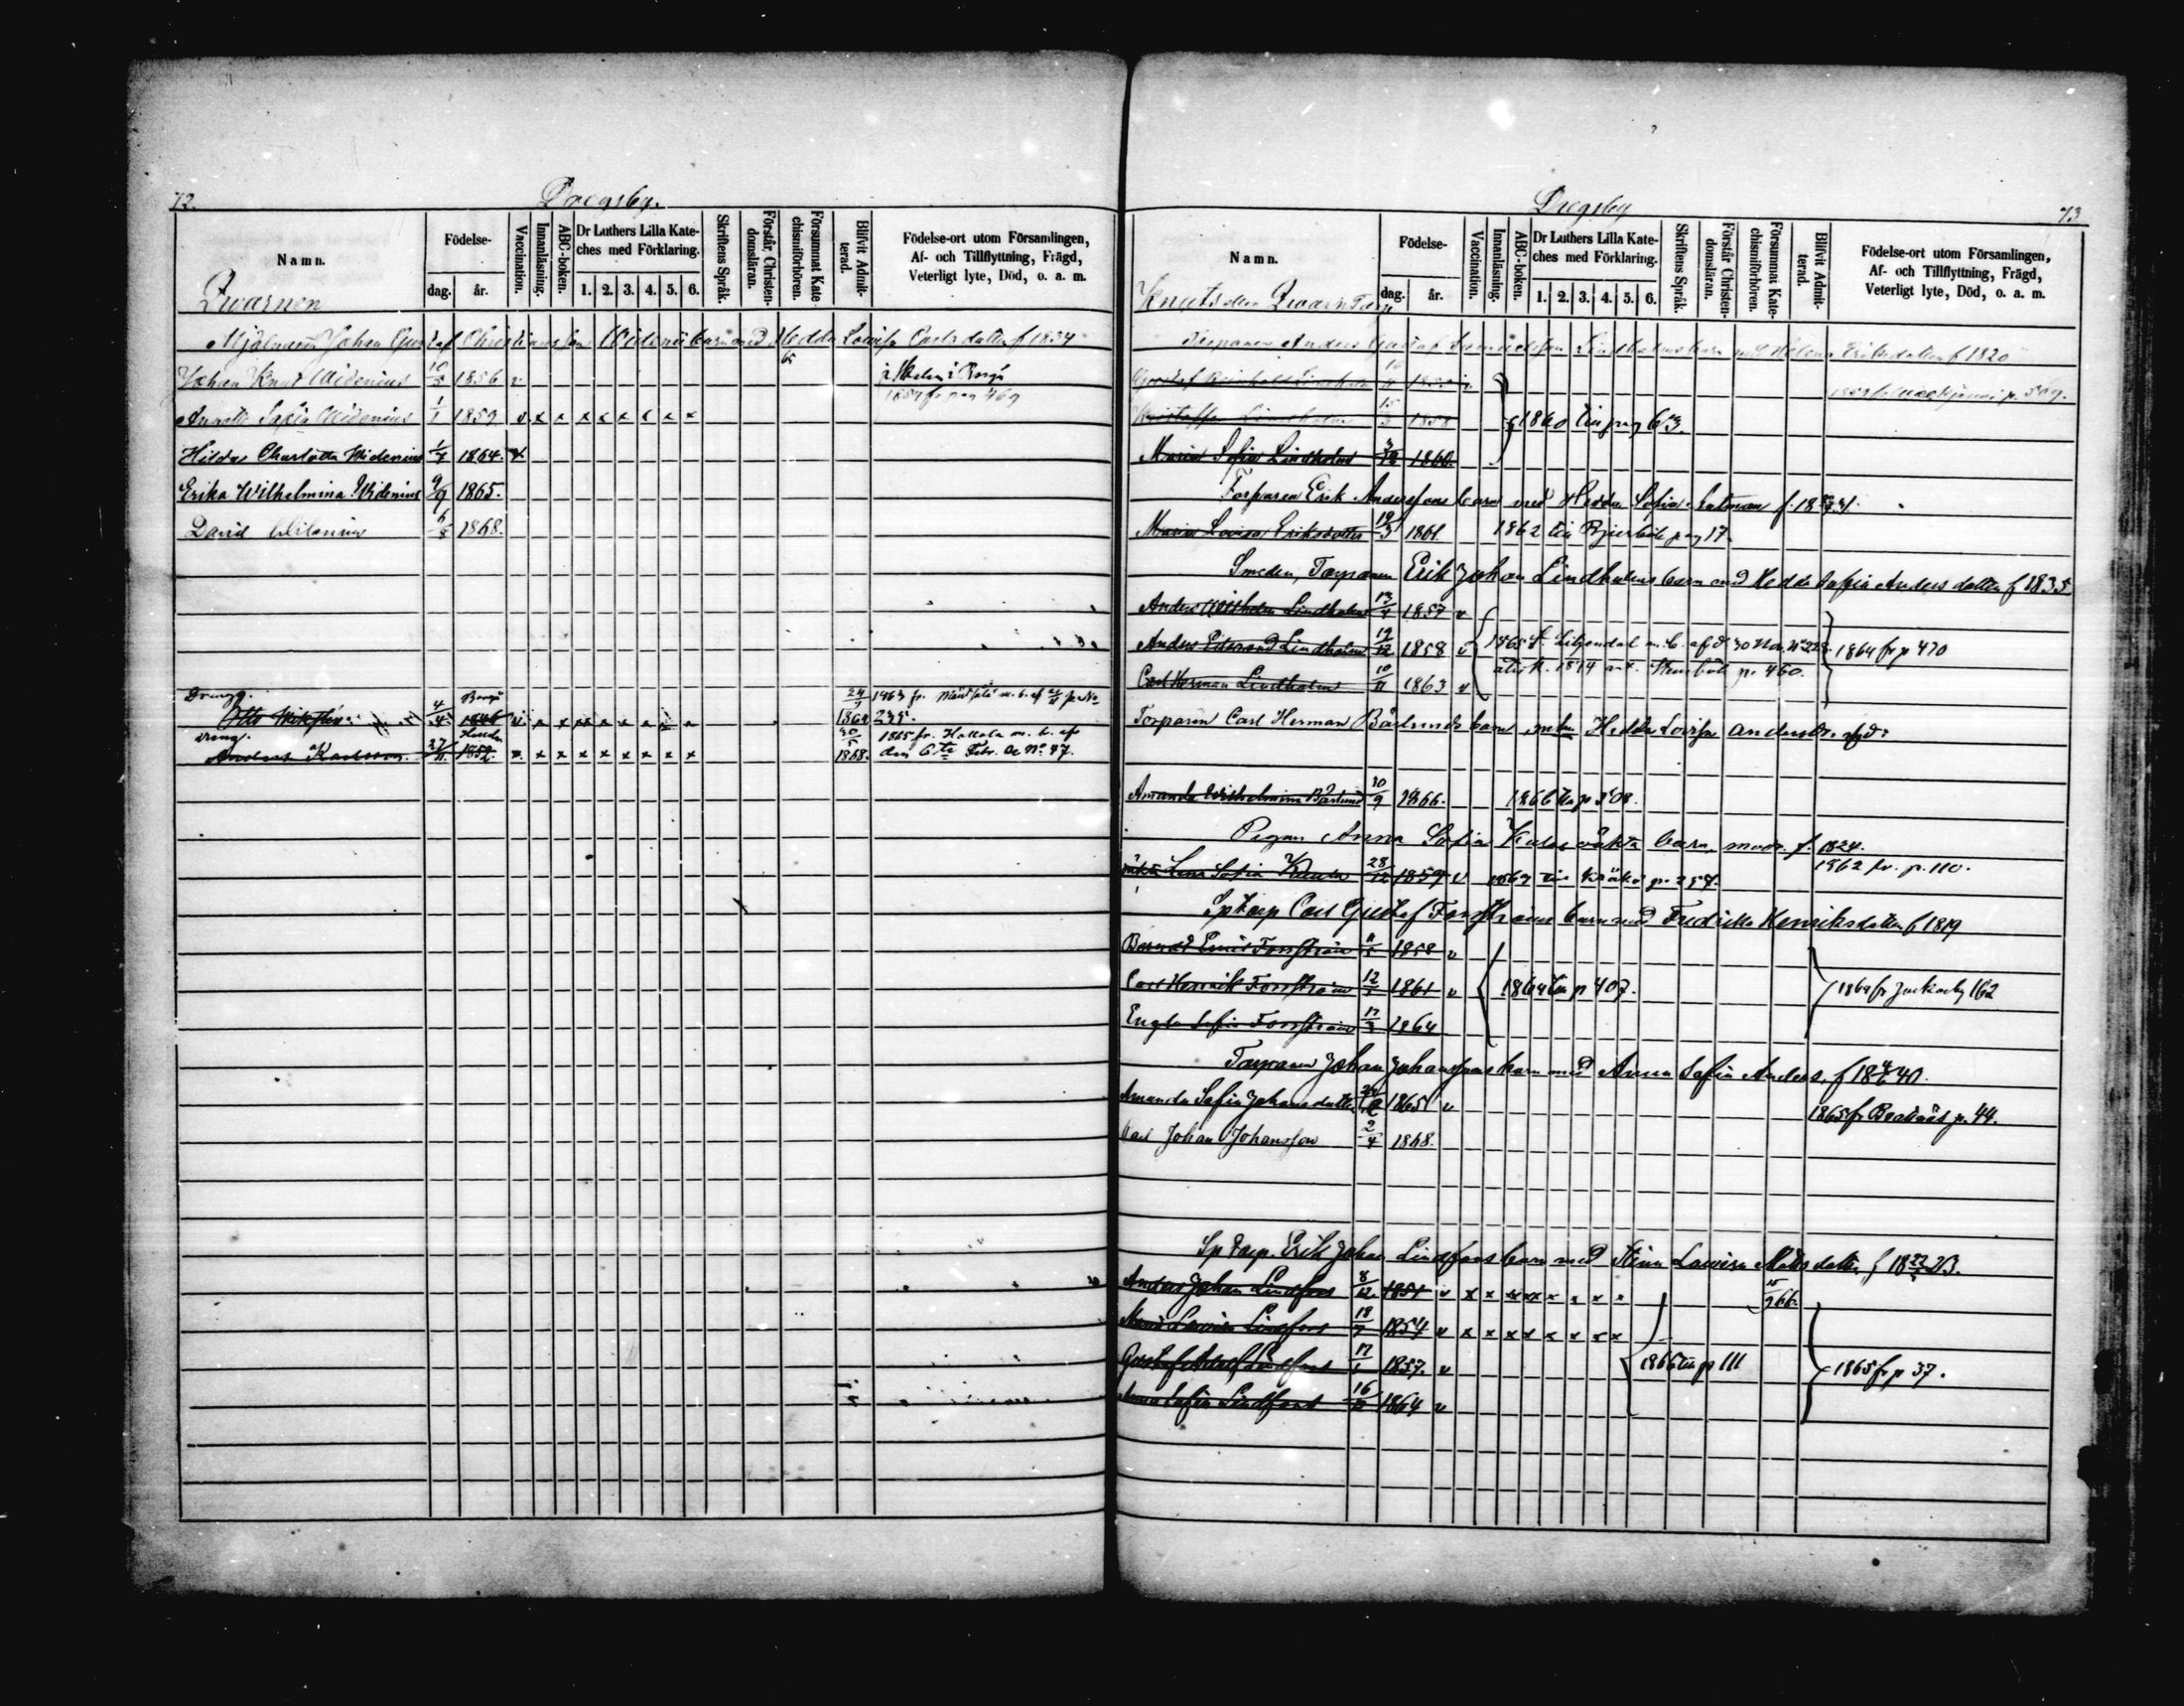 72.
Dregsby.
Namn.
Födelse-
dag. år.
Vaccination.
Innanläsning.
ABC-boken.
Dr Luthers Lilla Kate-
ches med Förklaring.
1. 2. 3. 4. 5. 6.
Skriftens Språk.
Förstår Christen-
domsläran.
Försummat Kate-
chismiförhören.
Blifvit Admit-
terad.
Födelse-ort utom Församlingen,
Af- och Tillflyttning, Frägd,
Veterligt lyte, Död, o. a. m.
Qwarnen
Mjölnaren Johan Gustaf Christiansson Widenii barn med Hedda Lovisa Carlsdotter f 1834
Johan Knut Widenius 1856 v
1859 fr pag 469
Sofia Widenius 1/1 1859 v x x x x x x x x
Hilda Charlotta Widenius 1/7 1864. v
Erika Wilhelmina Widenius 9/9 1865.
David Widenius 1868.
Dreng.
Otto 4/4 1846 v x x x x x x x x 24/1 1864 1863 fr. m. b. af
235.
dreng.
Anders Karlsson. 27/11 1852. v. x x x x x x x x 30/5 1868. 1865 fr. Hollola m. b. af
den 6te Febr. a No 47.
73
Dregsby
Namn.
Födelse-
dag. år.
Vaccination.
Innanläsning.
ABC-boken.
Dr Luthers Lilla Kate-
ches med Förklaring.
1. 2. 3. 4. 5. 6.
Skriftens Språk.
Förstår Christen-
domsläran.
Försummat Kate-
chismiförhören.
Blifvit Admit-
terad.
Födelse-ort utom Församlingen,
Af- och Tillflyttning, Frägd,
Veterligt lyte, Död, o. a. m.
Knuts eller Qwarn Torp
Torparen Anders Gustaf Lindholms barn med Helena Eriksdotter f 1820
Gustaf Lindholm
Lindholm 15/3 1858 1860 till pag 63.
Maria Sofia Lindholm 1860.
Torparen Erik Anderssons barn med Hedda Sofia f. 18
Maria Lovisa Eriksdotter 19/3 1861 1862 till pag 17.
Smeden, Torparen Erik Johan Lindholms barn med Hedda Sofia Andersdotter f 1835
Anders Wilhelm Lindholm 13/4 1857 v
Anders Lindholm 19/12 1858 v 1865 t. Liljendal m. b. af d. 30 Nov. No 228. 1864 fr p 470
Carl Herman Lindholm 10/11 1863 v p. 460.
Torparen Carl Herman Bärlunds barn m. h. Hedda Lovisa Andersdr.
Amanda Wilhelmina Bärlund 30/9 1866. 1866 till p 508.
Pigan Anna Sofia oäkta barn, modr. f. 1824.
1862 fr. p. 110.
oäkta Lena Sofia 28/12 1859 v 1869 till p. 257.
Sp torp Carl Gustaf Forsströms barn med Fredrika Henriksdotter f 1819
Forsström 1858 v
Carl Henrik Forsström 1861 v 1864 till p 407. 1864 fr Jackarby 162
Engla Sofia Forsström 17/3 1864
Torparen Johan Johanssons barn med Anna Sofia Anders. f 1840.
Amanda Sofia Johansdotter 1865 v 1865 fr p. 44.
Carl Johan Johansson 2/4 1868.
Sp torp. Erik Johan Lindfors barn med Stina Lovisa Matsdotter f 1823.
Anders Johan Lindfors 8/12 1851 v x x x x x x x x 15/9 66.
Maria Lovisa Lindfors 18/9 1854 v x x x x x x x x
Gustaf Adolf Lindfors 17/1 1857. v 1866 till p 111 1865 fr p 37.
Anna Sofia Lindfors 16/12 1864 v